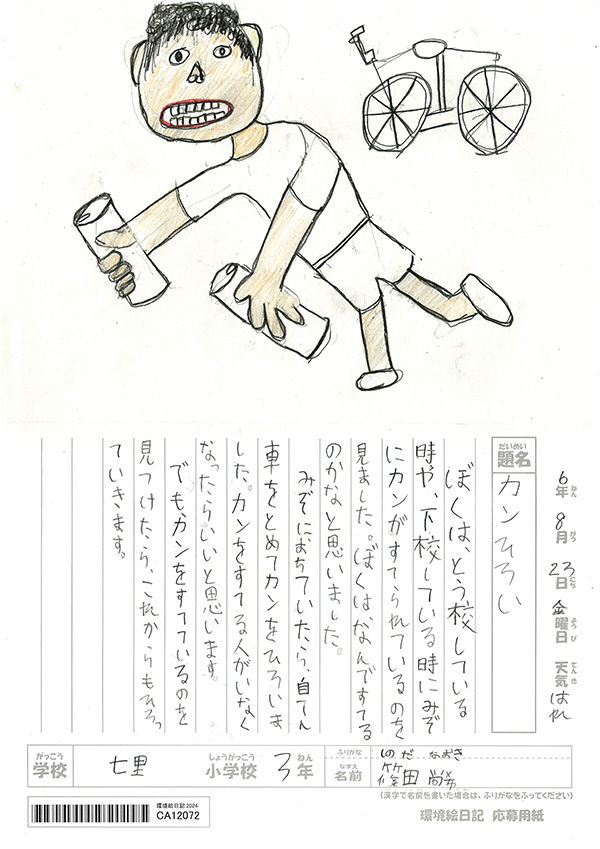 6年8月23日金曜日 天気はれ
ねん がつ にち ようび てんき
だいめい
題名
カンひろい
ぼくは、とう校している
時や、下校している時にみぞ
にカンがすてられているのを
見ました。ぼくはなんですてる
のかなと思いました。
みぞにおちていたら、自てん
車をとめてカンをひろいま
した。カンをすてる人がいなく
なったらいいと思います。
でも、カンをすてているのを
見つけたら、これからもひろっ
ていきます。
がっこう しょうがっこう ねん
学校 七里 小学校 3年
ふりがな しのだ なおき
なまえ
名前 篠田 尚希
(漢字で名前を書いた場合は、ふりがなをふってください)
環境絵日記2024
CA12072
環境絵日記 応募用紙